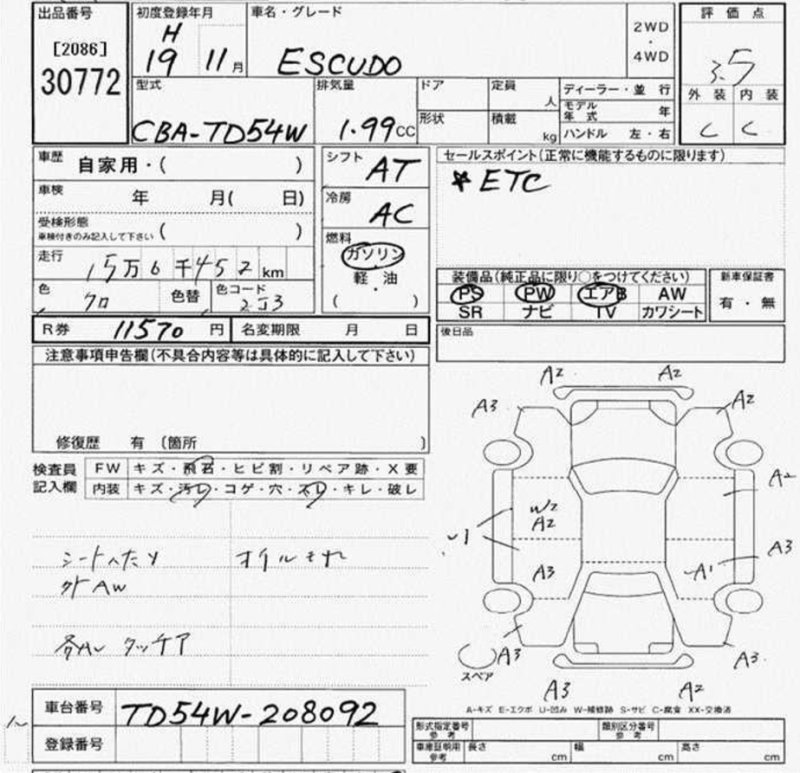 出品番号
[2086]
30772
初度登録年月
H
19 11月
車名・グレード
ESCUDO
2WD
・
4WD
評価点
3.5
外装 内装
C C
型式
CBA-TD54W
排気量
1.99CC
ドア
形状
定員 人
積載 kg
ディーラー・並行
モデル年式 年
ハンドル 左・右
車歴 自家用・( )
車検 年 月( 日)
受検形態
車検付きのみ記入して下さい ( )
走行 15万6千452km
色 クロ 色替
色コード 2J3
シフト AT
冷房 AC
燃料
ガソリン
軽・油
( )
セールスポイント(正常に機能するものに限ります)
* ETC
装備品(純正品に限り○をつけてください)
PS PW エアB AW
SR ナビ TV カワシート
新車保証書
有・無
R券 11570円 名変期限 月 日
後日品
注意事項申告欄(不具合内容等は具体的に記入して下さい)
修復歴 有 (箇所 )
検査員
記入欄
FW キズ・飛石・ヒビ割・リペア跡・X要
内装 キズ・汚レ・コゲ・穴・スレ・キレ・破レ
シートヘタリ オイルモレ
外AW
タッチア
A2 A2
A3 A2
A2
W2
A2
A3
A3 A1
A3 A3
スペア
A3 A2
A-キズ E-エクボ U-凹み W-補修跡 S-サビ C-腐食 XX-交換済
車台番号 TD54W-208092
登録番号
形式指定番号
参考
類別区分番号
参考
車庫証明用
参考
長さ cm 幅 cm 高さ cm